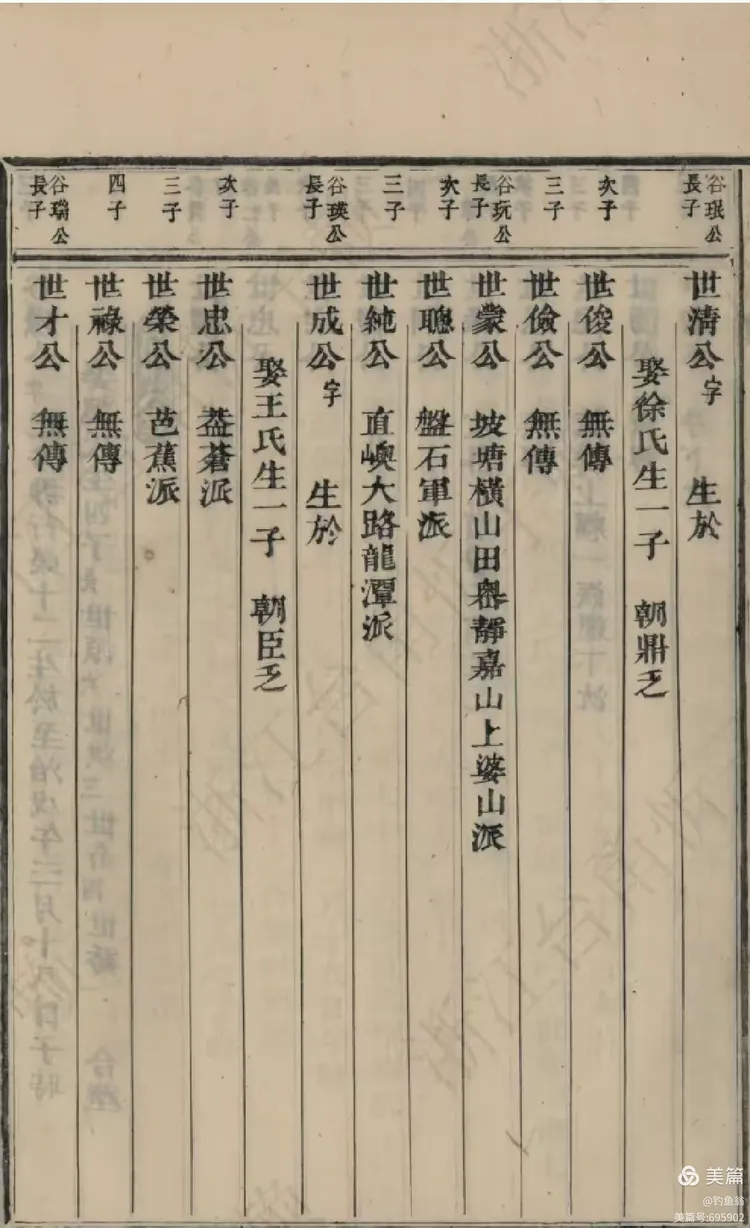 谷珉公
長子
世淸公字 生於
娶徐氏生一子 朝鼎乏
次子
世俊公 無傳
三子
世儉公 無傳
谷玩公
長子
世蒙公 坡塘橫山田岙靜嘉山上婆山派
次子
世聰公 盤石軍派
三子
世純公 直嶼大路龍潭派
谷瑛公
長子
世成公字 生於
娶王氏生一子 朝臣乏
次子
世忠公 蒼派
三子
世榮公 芭蕉派
四子
世祿公 無傳
谷瑞公
長子
世才公 無傳
美篇
@钓鱼翁
美篇号:695902